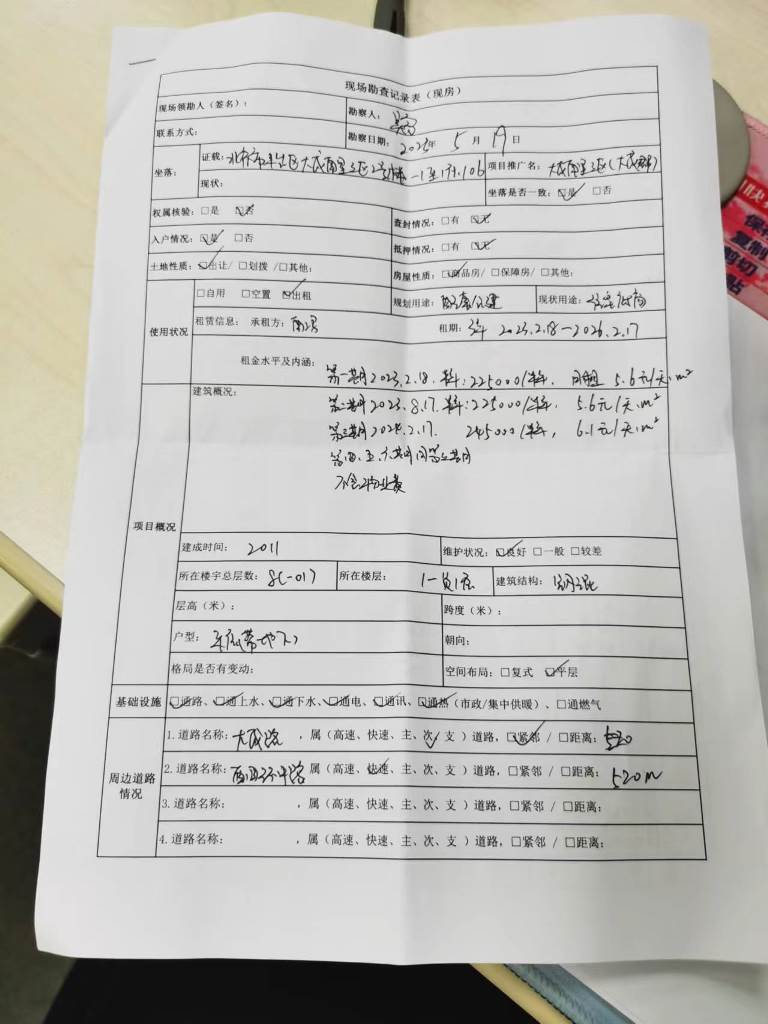 现场勘查记录表（现房）
现场领勘人（签名）： 勘察人：
联系方式： 勘察日期：2023年 5 月 19 日
坐落： 证载：北京市丰台区大成南里三区2号楼-1至1层106 项目推广名：大成南里三区（大成郡）
现状： 坐落是否一致：☑是 □否
权属核验：□是 ☑否 查封情况：□有 ☑无
入户情况：☑是 □否 抵押情况：□有 ☑无
土地性质：☑出让/ □划拨 / □其他： 房屋性质：☑商品房/ □保障房/ □其他：
使用状况 □自用 □空置 ☑出租 规划用途：配套公建 现状用途：
租赁信息： 承租方： 租期：3年 2023.2.18－2026.2.17
租金水平及内涵：
第一期 2023.2.18. 半年：225000/半年， 5.6元/天·m²
项目概况 建筑概况：
第二期 2023.8.17. 半年：225000/半年， 5.6元/天·m²
第三期 2024.2.17. 245000/半年， 6.1元/天·m²
第四、五、六期同第三期
不含物业费
建成时间： 2011 维护状况：☑良好 □一般 □较差
所在楼宇总层数：8(-01) 所在楼层： 1-负1层 建筑结构：钢混
层高（米）： 跨度（米）：
户型： 朝向：
格局是否有变动： 空间布局：□复式 ☑平层
基础设施 ☑通路、☑通上水、☑通下水、☑通电、☑通讯、☑通热（市政/集中供暖）、□通燃气
周边道路情况 1.道路名称：大成路 ，属（高速、快速、主、次、支）道路，☑紧邻 / □距离：
2.道路名称：西四环中路 属（高速、快速、主、次、支）道路，□紧邻 / □距离： 520m
3.道路名称： ，属（高速、快速、主、次、支）道路，□紧邻 / □距离：
4.道路名称： ，属（高速、快速、主、次、支）道路，□紧邻 / □距离：
保存
复制
剪切
粘贴